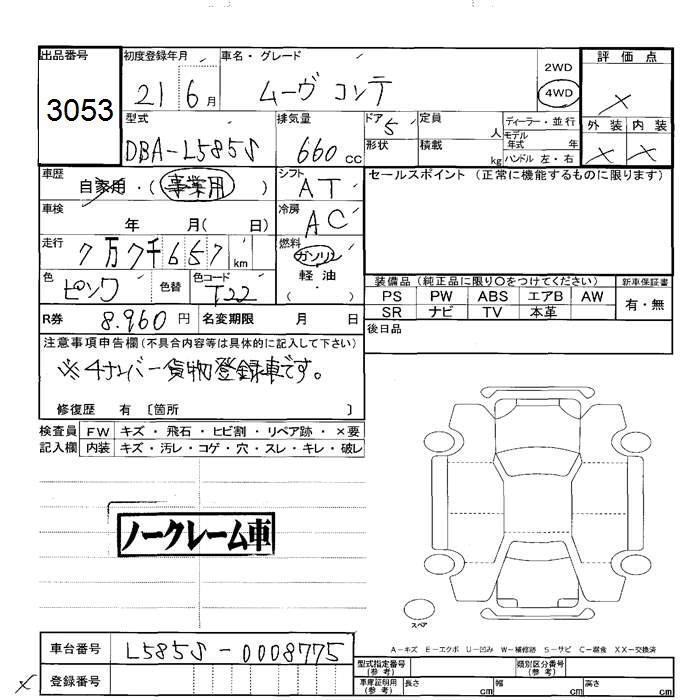 出品番号
3053
初度登録年月
21 6 月
車名・グレード
ムーヴ コンテ
2WD
4WD
評価点
×
外装 内装
× ×
型式
DBA-L585S
排気量
660 cc
ドア 5
形状
定員 人
積載 kg
ディーラー・並行
モデル年式 年
ハンドル 左・右
車歴
自家用・(事業用)
シフト
AT
セールスポイント (正常に機能するものに限ります)
車検
年 月( 日)
冷房
AC
走行
7万7千657 km
燃料
ガソリン
軽油
( )
色
ピンク
色替
色コード
T22
装備品 (純正品に限り○をつけてください)
新車保証書
PS PW ABS エアB AW
SR ナビ TV 本革
有・無
R券 8.960 円
名変期限 月 日
後日品
注意事項申告欄(不具合内容等は具体的に記入して下さい)
※4ナンバー貨物登録車です。
修復歴 有 〔箇所 〕
検査員
記入欄
FW キズ・飛石・ヒビ割・リペア跡・×要
内装 キズ・汚レ・コゲ・穴・スレ・キレ・破レ
ノークレーム車
スペア
A-キズ E-エクボ U-凹み W-補修跡 S-サビ C-腐食 XX-交換済
車台番号 L585S-0008775
× 登録番号
型式指定番号(参考)
類別区分番号(参考)
車庫証明用(参考) 長さ cm 幅 cm 高さ cm